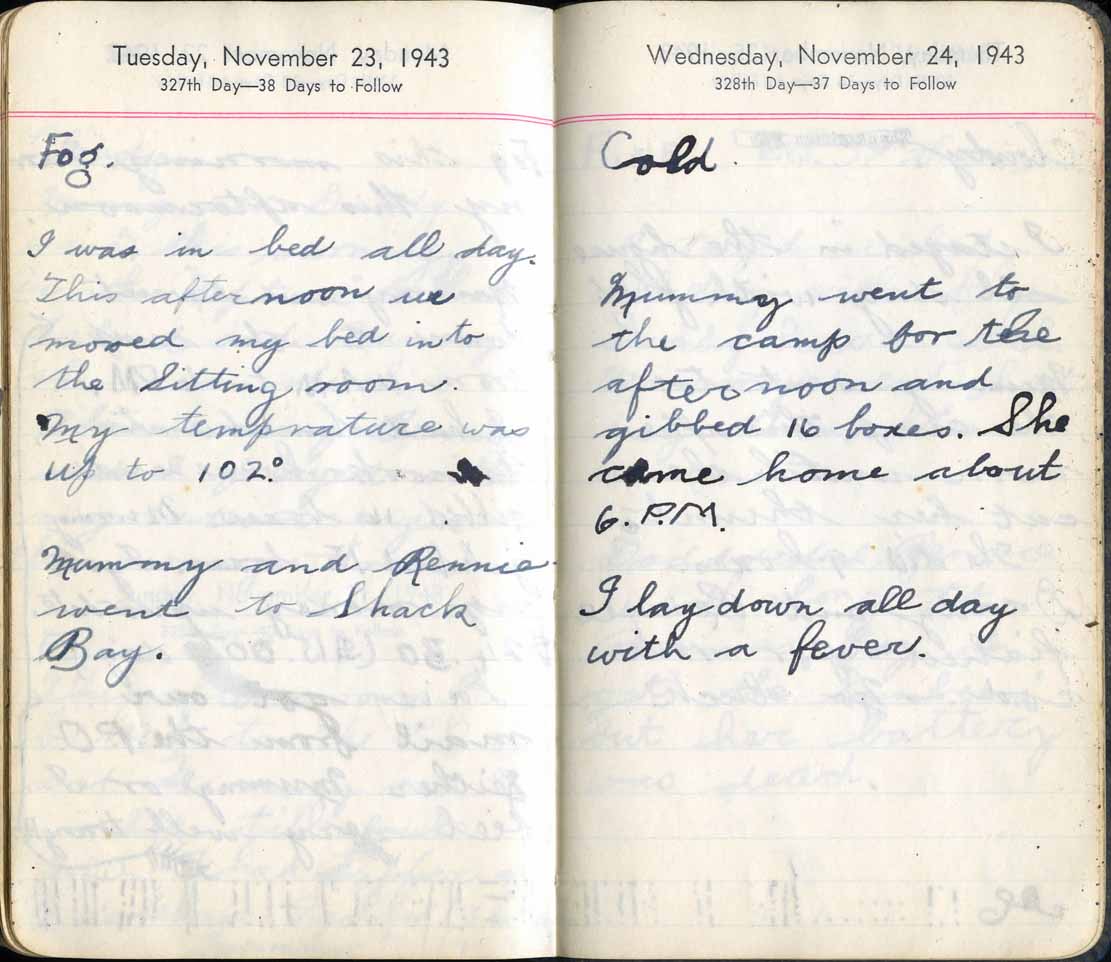 Tuesday, November 23, 1943
327th Day—38 Days to Follow
Fog.
I was in bed all day.
This afternoon we
moved my bed into
the Sitting room.
My temprature was
up to 102°.
Mummy and Rennie
went to Shack
Bay.
Wednesday, November 24, 1943
328th Day—37 Days to Follow
Cold.
Mummy went to
the camp for the
afternoon and
gibbed 16 boxes. She
came home about
6. P.M.
I lay down all day
with a fever.